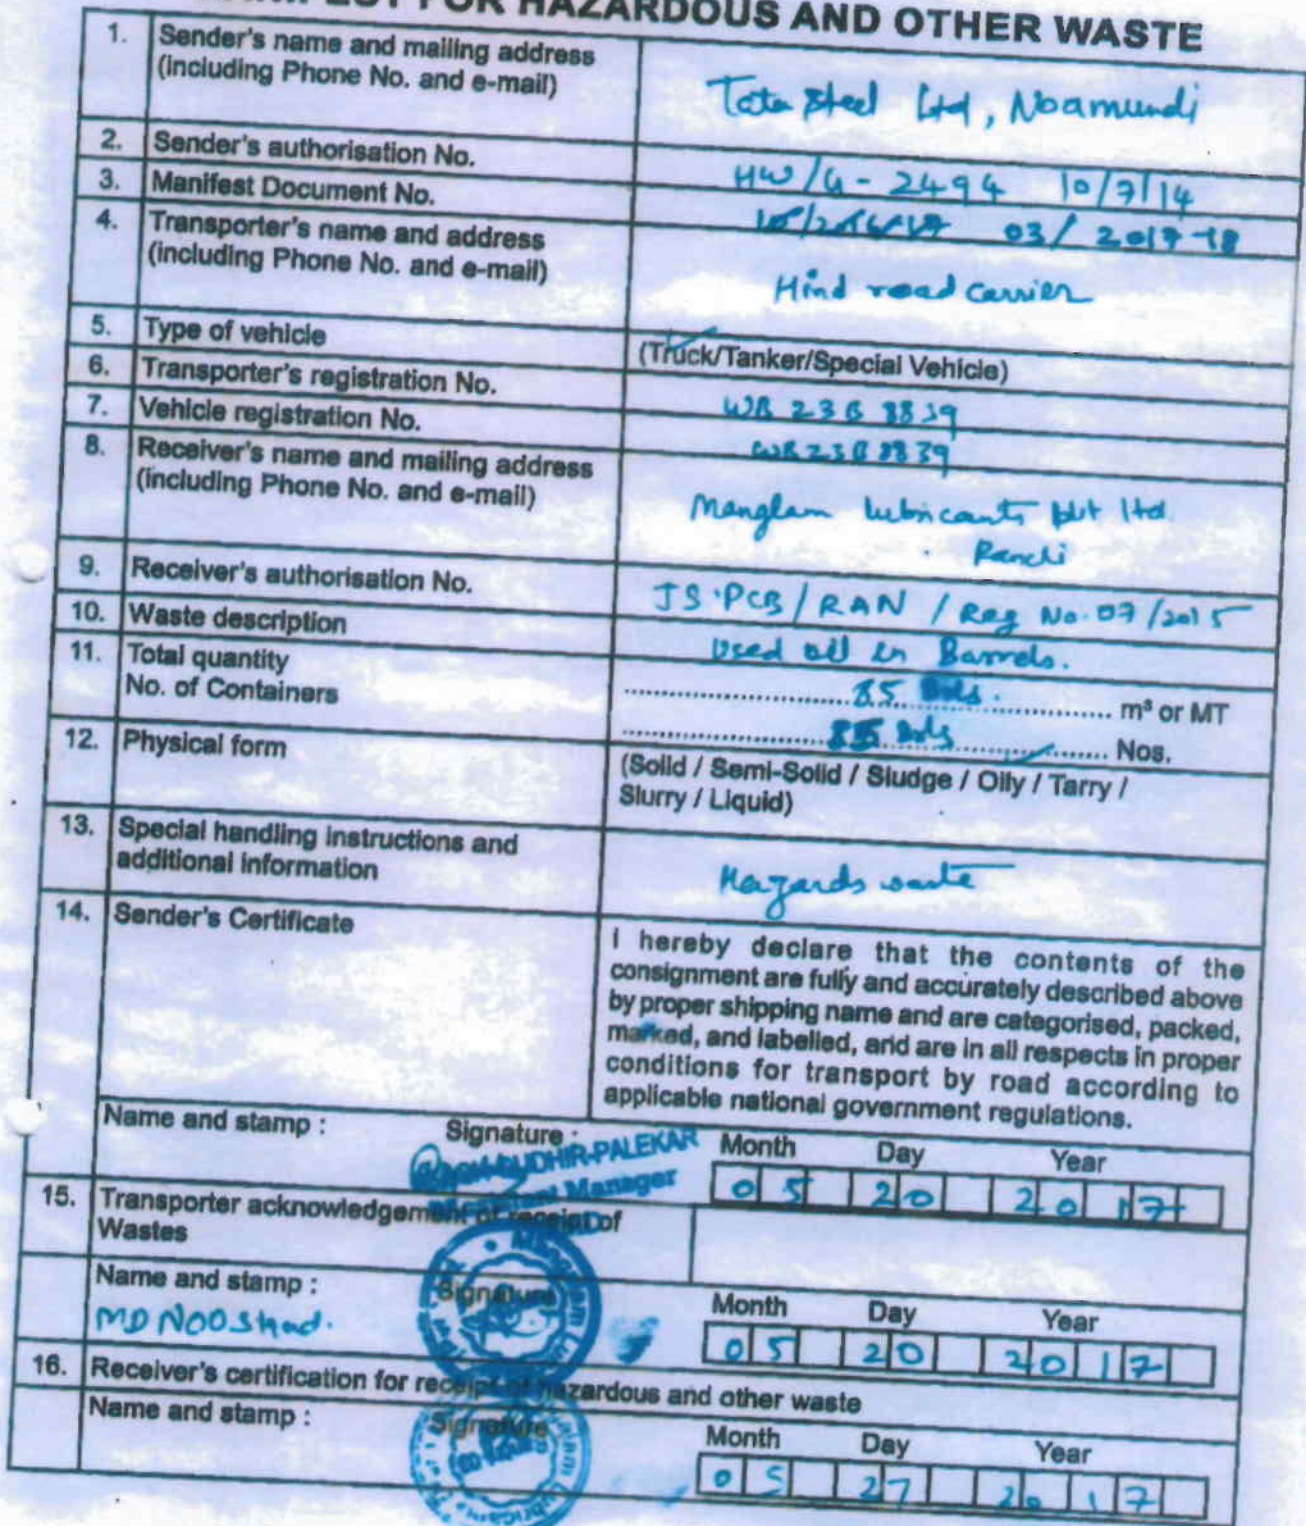 FOR HAZARDOUS AND OTHER WASTE
1. Sender's name and mailing address
(including Phone No. and e-mail)
Tata Steel Ltd, Noamundi
2. Sender's authorisation No.
HW/G-2494 10/7/14
3. Manifest Document No.
03/2017-18
4. Transporter's name and address
(including Phone No. and e-mail)
Hind road carrier
5. Type of vehicle
(Truck/Tanker/Special Vehicle)
6. Transporter's registration No.
WB 23B 8839
7. Vehicle registration No.
WB23B 8839
8. Receiver's name and mailing address
(including Phone No. and e-mail)
Manglam lubricants pvt ltd
Ranchi
9. Receiver's authorisation No.
JS.PCB/RAN/Reg No.07/2015
10. Waste description
Used oil in Barrels.
11. Total quantity
85 m³ or MT
No. of Containers
85 Brls Nos.
12. Physical form
(Solid / Semi-Solid / Sludge / Oily / Tarry /
Slurry / Liquid)
13. Special handling instructions and
additional information
Hazards waste
14. Sender's Certificate
I hereby declare that the contents of the
consignment are fully and accurately described above
by proper shipping name and are categorised, packed,
marked, and labelled, and are in all respects in proper
conditions for transport by road according to
applicable national government regulations.
Name and stamp : Signature : Month Day Year
SUDHIR PALEKAR
Manager
05 20 2017
15. Transporter acknowledgement of receipt of
Wastes
Name and stamp : Signature Month Day Year
MD NOOShad.
05 20 2017
Manglam
16. Receiver's certification for receipt of hazardous and other waste
Name and stamp : Signature Month Day Year
05 27 2017